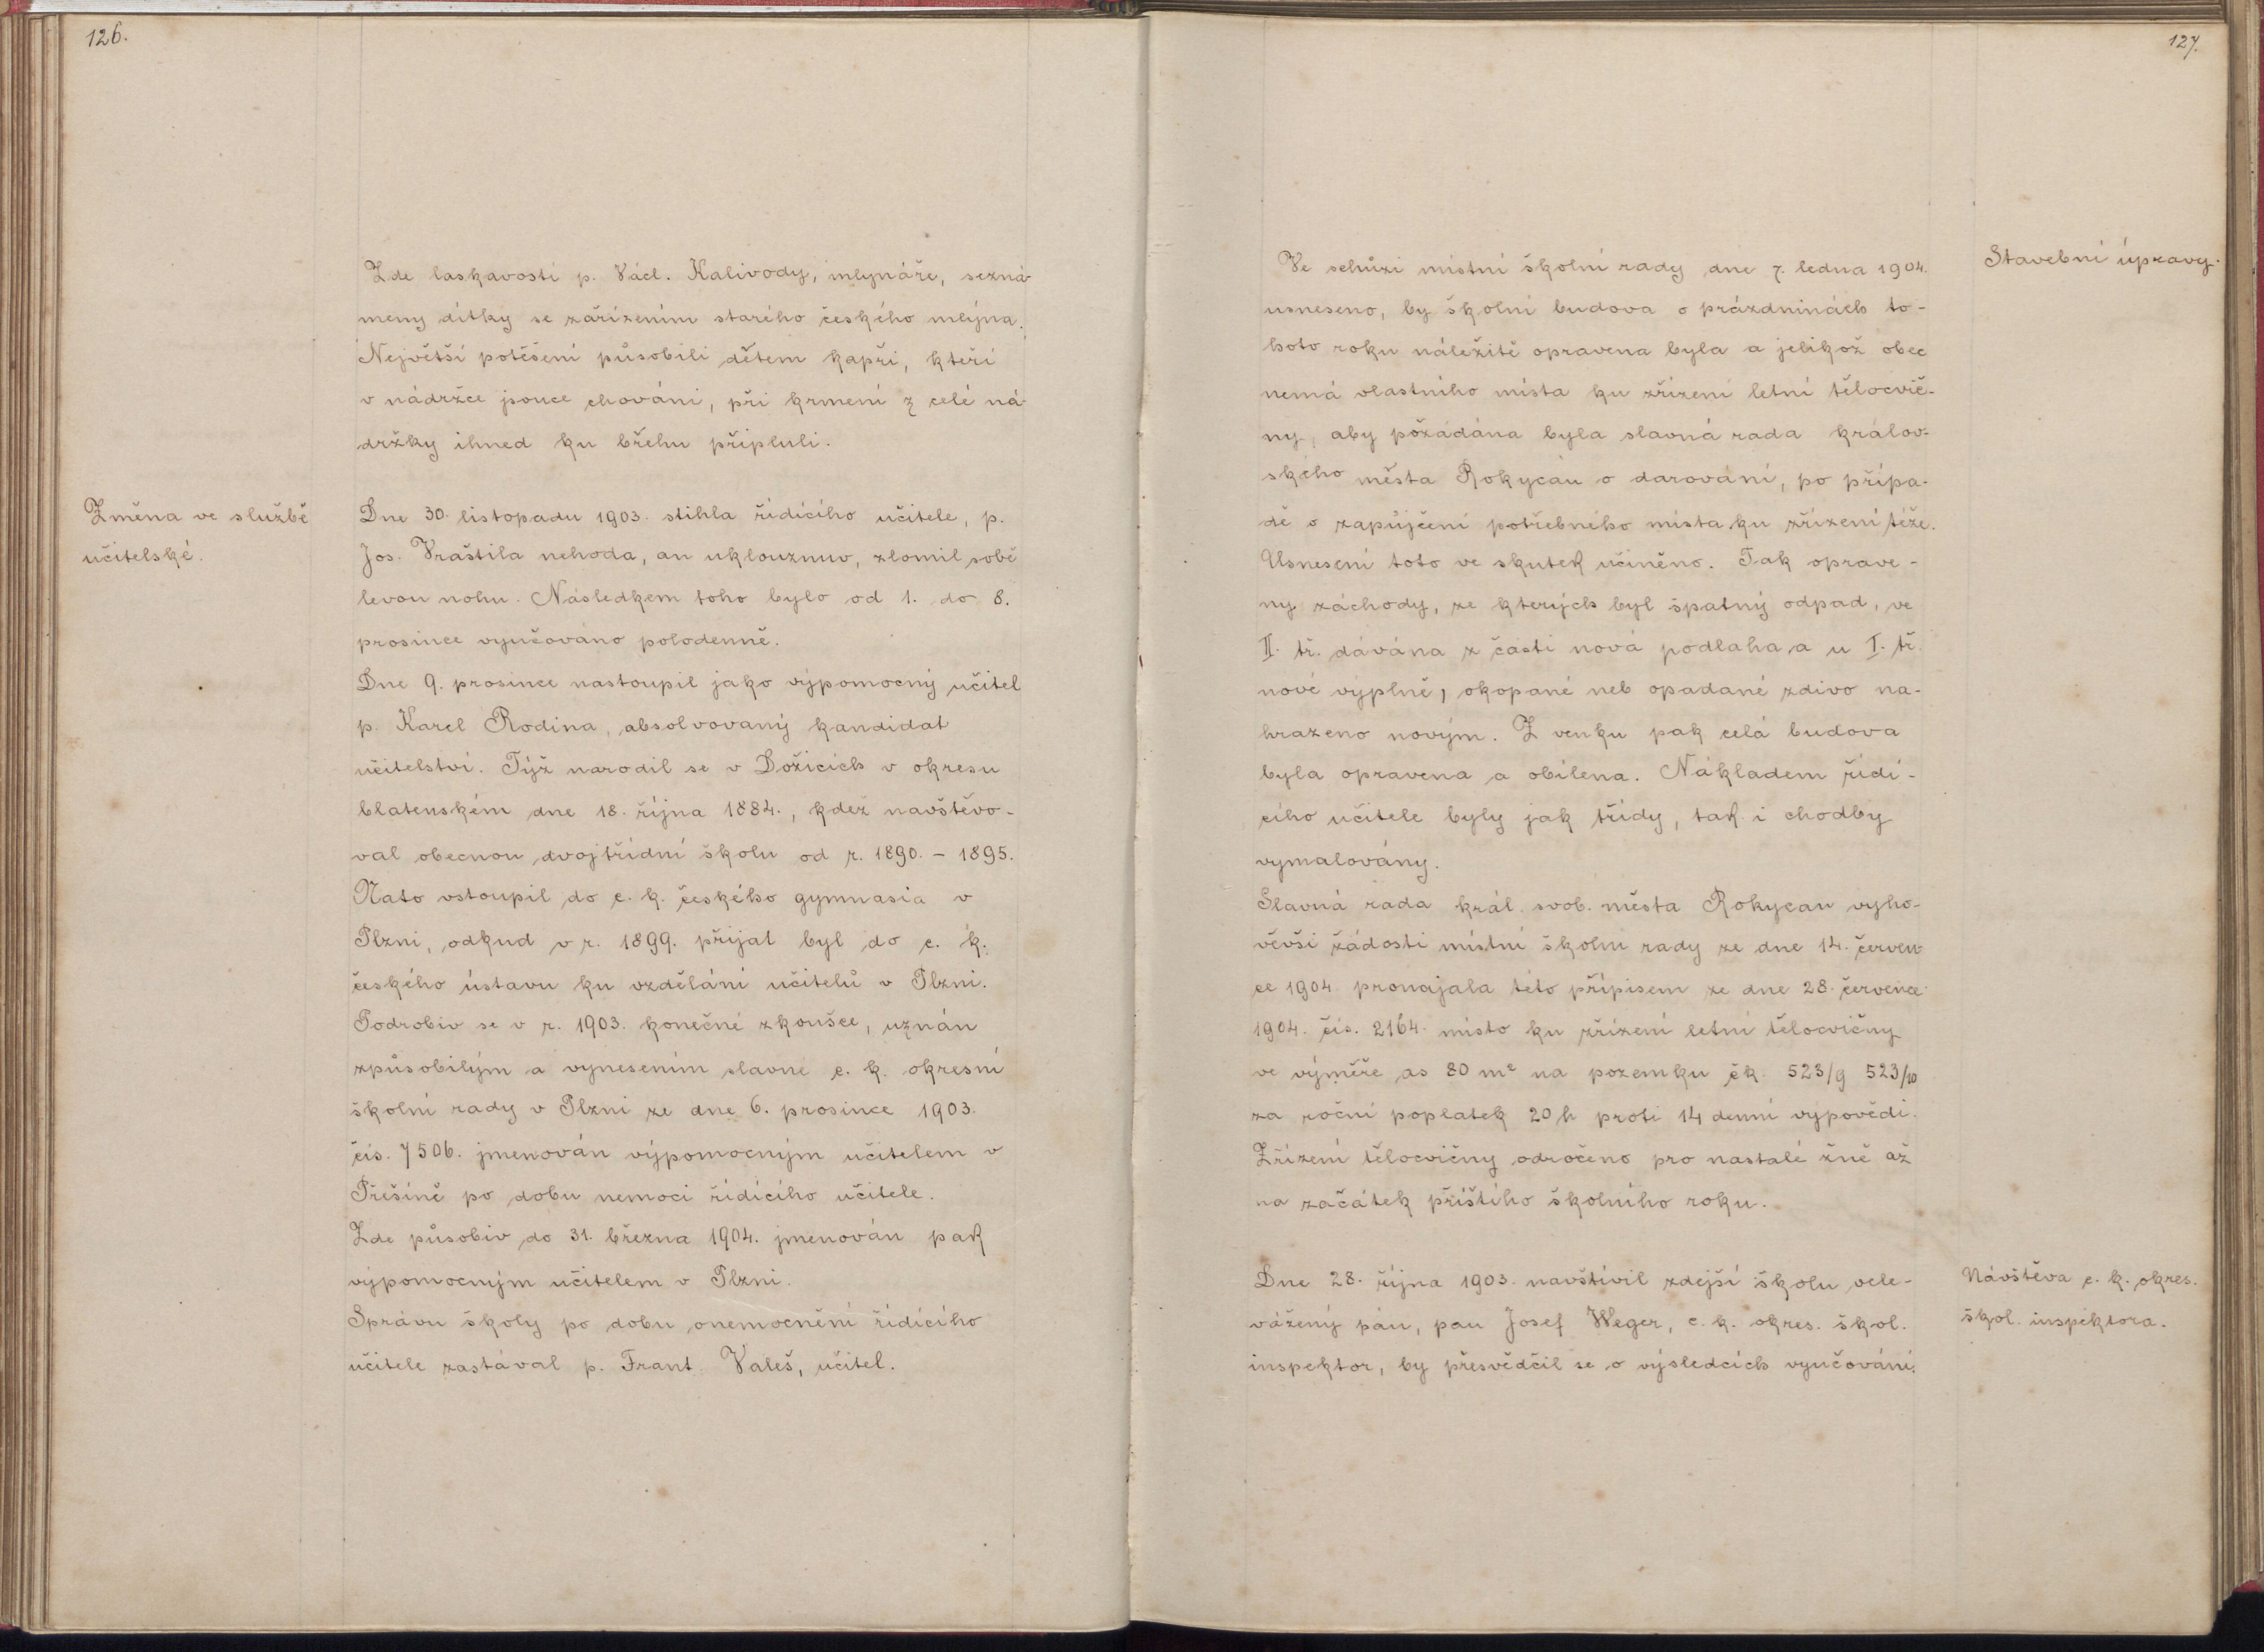 126.
Zde laskavostí p. Václ. Kalivody, mlynáře, sezná-
meny dítky se zařízením starého českého mlýna.
Největší potěšení působili dětem kapři, kteří
v nádržce jsouce chováni, při krmení z celé ná-
držky ihned ku břehu připluli.
Změna ve službě
učitelské.
Dne 30. listopadu 1903. stihla řídícího učitele, p.
Jos. Vraštila nehoda, an uklouznuv, zlomil sobě
levou nohu. Následkem toho bylo od 1. do 8.
prosince vyučováno polodenně.
Dne 9. prosince nastoupil jako výpomocný učitel
p. Karel Rodina, absolvovaný kandidat
učitelství. Týž narodil se v Dožicích v okresu
blatenském dne 18. října 1884., kdež navštěvo-
val obecnou dvojtřídní školu od r. 1890. – 1895.
Nato vstoupil do c. k. českého gymnasia v
Plzni, odkud v r. 1899. přijat byl do c. k.
českého ústavu ku vzdělání učitelů v Plzni.
Podrobiv se v r. 1903. konečné zkoušce, uznán
způsobilým a vynesením slavné c. k. okresní
školní rady v Plzni ze dne 6. prosince 1903.
čís. 7506. jmenován výpomocným učitelem v
Příšíně po dobu nemoci řídícího učitele.
Zde působiv do 31. března 1904. jmenován pak
výpomocným učitelem v Plzni.
Správu školy po dobu onemocnění řídícího
učitele zastával p. Frant. Valeš, učitel.
127.
Stavební úpravy.
Ve schůzi místní školní rady dne 7. ledna 1904.
usneseno, by školní budova o prázdninách to-
hoto roku náležitě opravena byla a jelikož obec
nemá vlastního místa ku zřízení letní tělocvič-
ny, aby požádána byla slavná rada králov-
ského města Rokycan o darování, po přípa-
dě o zapůjčení potřebného místa ku zřízení téže.
Usnesení toto ve skutek učiněno. Tak oprave-
ny záchody, ze kterých byl špatný odpad, ve
II. tř. dávána z části nová podlaha a u I. tř.
nové výplně, okopané neb opadané zdivo na-
hrazeno novým. Z venku pak celá budova
byla opravena a obílena. Nákladem řídí-
cího učitele byly jak třídy, tak i chodby
vymalovány.
Slavná rada král. svob. města Rokycan vyho-
věvši žádosti místní školní rady ze dne 14. červen-
ce 1904. pronajala této přípisem ze dne 28. července
1904. čís. 2164. místo ku zřízení letní tělocvičny
ve výměře as 80 m² na pozemku čk. 523/9 523/10
za roční poplatek 20 h proti 14 denní výpovědi.
Zřízení tělocvičny odročeno pro nastalé žně až
na začátek příštího školního roku.
Návštěva c. k. okres.
škol. inspektora.
Dne 28. října 1903. navštívil zdejší školu vele-
vážený pán, pan Josef Weger, c. k. okres. škol.
inspektor, by přesvědčil se o výsledcích vyučování.